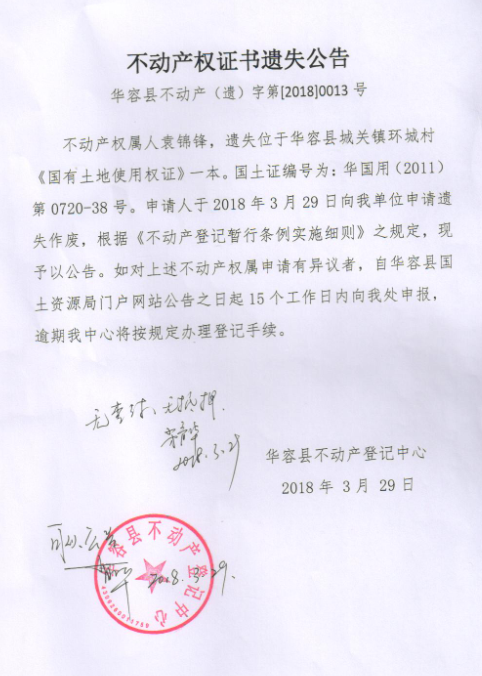 不动产权证书遗失公告
华容县不动产（遗）字第[2018]0013 号
不动产权属人袁锦锋，遗失位于华容县城关镇环城村
《国有土地使用权证》一本。国土证编号为：华国用（2011）
第 0720-38 号。申请人于 2018 年 3 月 29 日向我单位申请遗
失作废，根据《不动产登记暂行条例实施细则》之规定，现
予以公告。如对上述不动产权属申请有异议者，自华容县国
土资源局门户网站公告之日起 15 个工作日内向我处申报，
逾期我中心将按规定办理登记手续。
无查封、无抵押.
2018.3.29
华容县不动产登记中心
2018 年 3 月 29 日
可以公告
2018.3.29.
华容县不动产登记中心